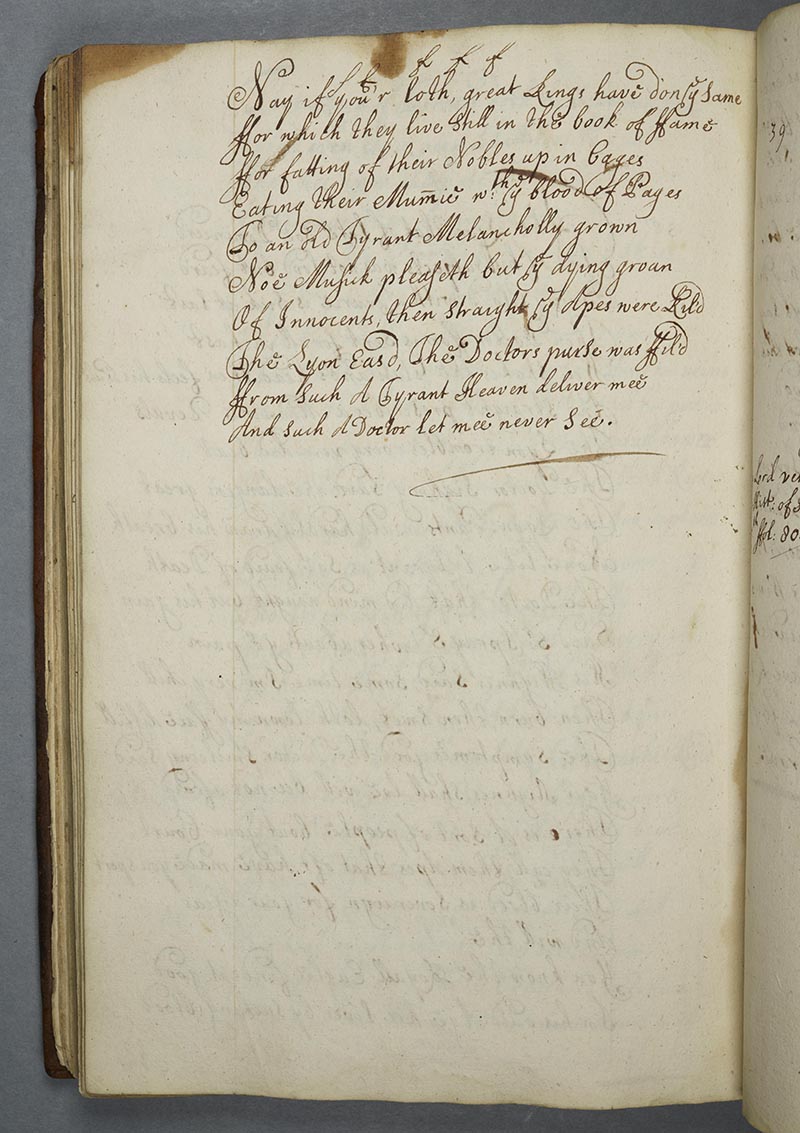 Nay if you'r loth, great Kings have don yͤ same
ffor which they live still in the book of ffame
ffor fatting of their Nobles up in Cages
Eating their Mum̄ie wth yͤ blood of Pages
To an old Tyrant Melancholly grown
Noe Musick pleaseth but yͤ dying groan
Of Innocents, then straight yͤ Apes were Kild
The Lyon Eas'd, The Doctors purse was ffild
ffrom such A Tyrant Heaven deliver mee
And such A Doctor let mee never see.
39
Hist: of
ffol: 80